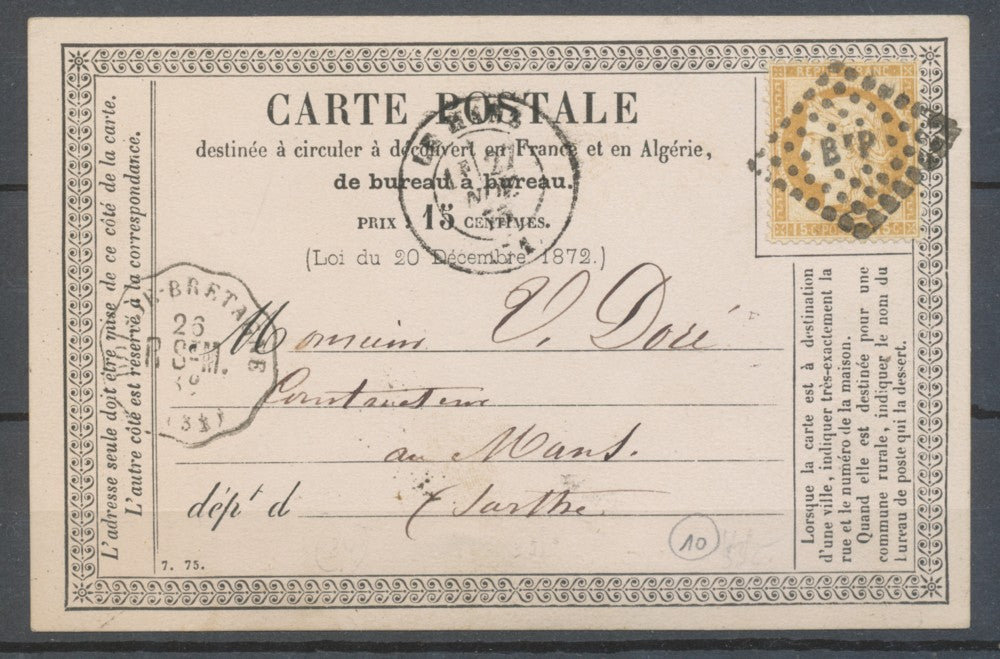 CARTE POSTALE
destinée à circuler à découvert en France et en Algérie,
de bureau à bureau.
PRIX : 15 CENTIMES.
(Loi du 20 Décembre 1872.)
Monsieur V. Doré
Constructeur
au Mans.
dépt d Sarthe
7. 75.
L'adresse seule doit être mise de ce côté de la carte.
L'autre côté est réservé à la correspondance.
Lorsque la carte est à destination
d'une ville, indiquer très-exactement la
rue et le numéro de la maison.
Quand elle est destinée pour une
commune rurale, indiquer le nom du
bureau de poste qui la dessert.
LE MANS
27
NOV
-BRETAGNE
26
B P
15 C 15 C
10